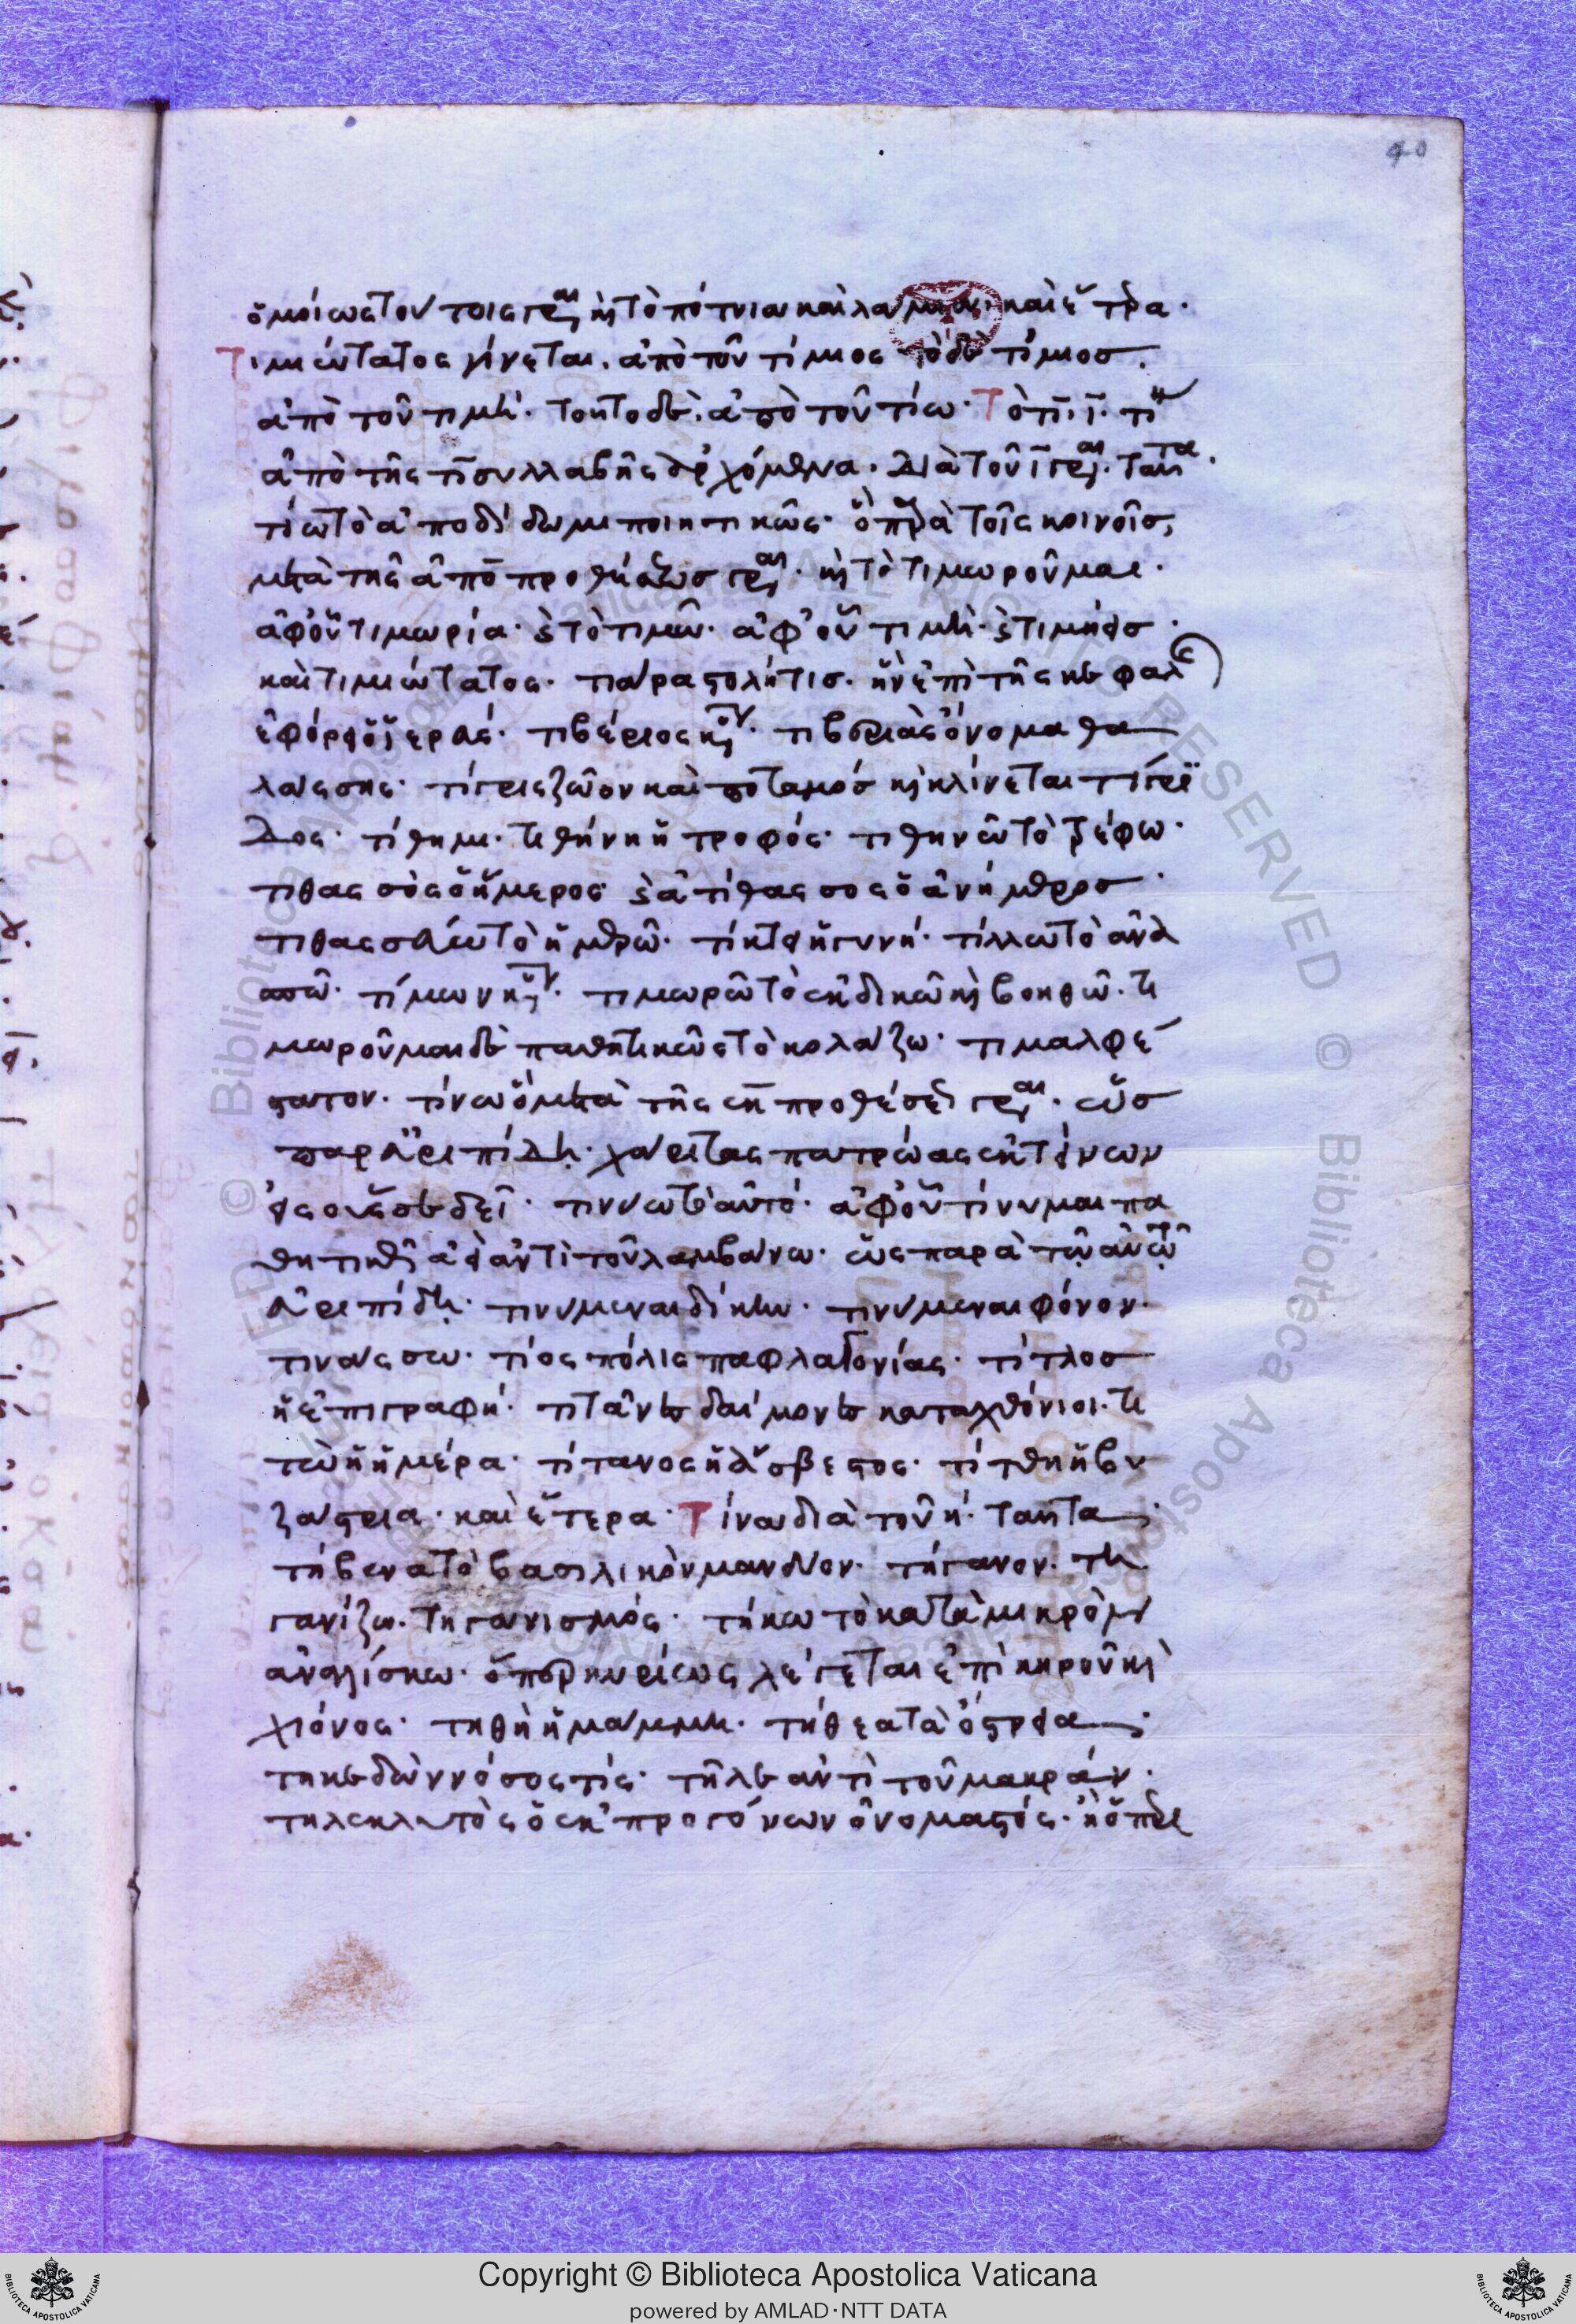 40
ὁμοίως τὸν τοις γρ(άφεται) κ(αὶ) τὸ πότνια καὶ καὶ ἕτερα.
Τιμιώτατος γίνεται. ἀπὸ τοῦ τίμιος τὸ δὲ τίμιος.
ἀπὸ τοῦ τιμή. τοῦτο δὲ. ἀπὸ τοῦ τίω. Τὸ τι. ι.
ἀπὸ τῆς τι συλλαβῆς ἀρχόμενα. διὰ τοῦ ι γρ(άφεται). ταῦτα.
τίω τὸ ἀποδίδωμι ποιητικῶς. ὃ παρὰ τοῖς κοινοῖς,
μετὰ τῆς ἀπὸ προθέσεως γρ(άφεται). κ(αὶ) τὸ τιμωροῦμαι.
ἀφ' οὗ τιμωρία. κ(αὶ) τὸ τιμῶ. ἀφ' οὗ τιμὴ. κ(αὶ) τιμήεις.
καὶ τιμιώτατος. τιάρα στολή τις. ἣν ἐπὶ τῆς κεφαλῆς
ἐφόρει ὁ ἱερεύς. τιβέριος κύριον. τιβεριὰς ὄνομα θα
λάσσης. τίγρις ζῶον καὶ ποταμός κ(αὶ) κλίνεται τίγρι
δος. τίθημι. τιθήνη ἡ τροφός. τιθηνῶ τὸ τρέφω.
τιθασσὸς ὁ ἥμερος κ(αὶ) ἀτίθασσος ὁ ἀνήμερος.
τιθασσεύω τὸ ἡμερῶ. τίκτει ἡ γυνή. τίλλω τὸ ἀνα
σπῶ. τίμων κύριον. τιμωρῶ τὸ ἐκδικῶ κ(αὶ) βοηθῶ. τι
μωροῦμαι δὲ παθητικῶς τὸ κολάζω. τιμαλφέ
στατον. τίνω ὃ μετὰ τῆς ἐκ προθέσεως γρ(άφεται). ὡς
παρ' εὐριπίδῃ. χάριτας πατρώας ἐκτίνων
εἰς οὕς σε δεῖ. τιννύω τὸ αὐτό. ἀφ' οὗ τίννυμαι πα
θητικὴ ἀεὶ ἀντὶ τοῦ λαμβάνω. ὡς παρὰ τῷ αὐτῷ
εὐριπίδῃ. τιννύμεναι δίκην. τιννύμεναι φόνον.
τινάσσω. τίος πόλις παφλαγονίας. τίτλος
ἡ ἐπιγραφή. τιτᾶνες δαίμονες καταχθόνιοι. τι
τὼ ἡ ἡμέρα. τίτανος ἡ ἄσβεστος. τίτθη ἡ βυ
ζάστρια. καὶ ἕτερα. Τίνα διὰ τοῦ η. ταῦτα.
τήβεννα τὸ βασιλικὸν μανδύον. τήγανον. τη
γανίζω. τηγανισμός. τήκω τὸ κατὰ μικρὸν
ἀναλίσκω. ὅπερ κυρίως λέγεται ἐπὶ κηροῦ κ(αὶ)
χιόνος. τηθὴ ἡ μάμμη. τήθεα τὰ ὄστρεα.
τηκεδὼν νόσος τίς. τῆλε ἀντὶ τοῦ μακράν.
τηλεκλυτὸς ὁ ἐκ προγόνων ὀνομαστός. ἢ ὁ περὶ
Copyright © Biblioteca Apostolica Vaticana
powered by AMLAD·NTT DATA